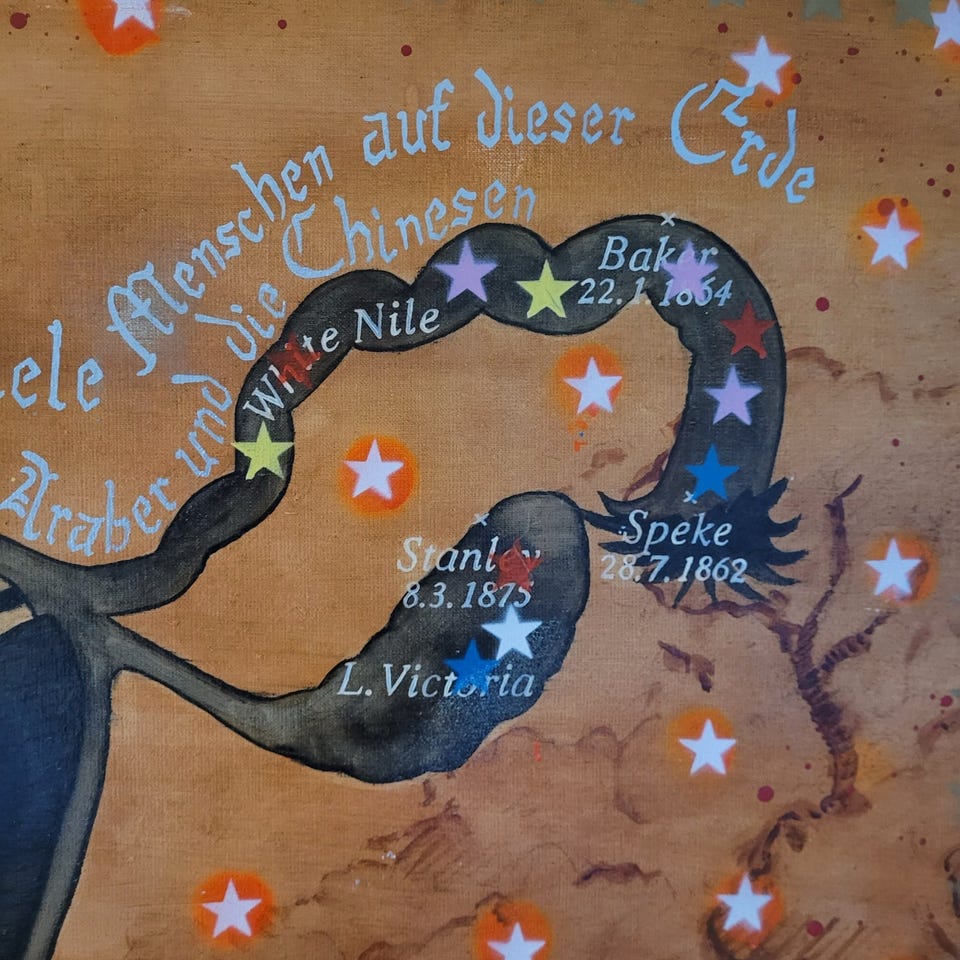 ele Menschen auf dieser Erde
Araber und die Chinesen
White Nile
× Baker
22.1.1864
× Speke
28.7.1862
× Stanley
8.3.1875
L. Victoria